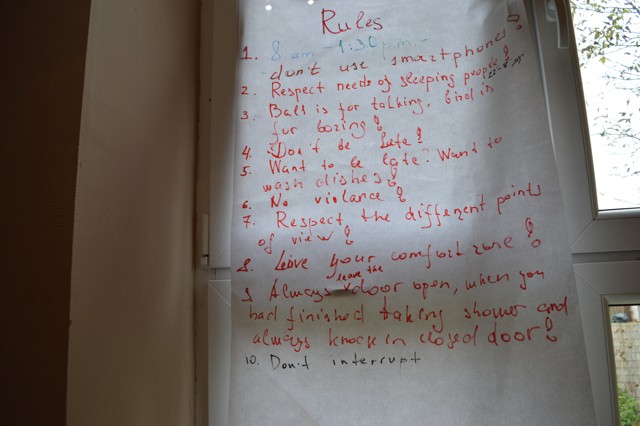 Rules
1. 8 am - 1:30 p.m. -
don't use smartphones!
2. Respect needs of sleeping people!
3. Ball is for talking, bird is
for boring!
4. Don't be late!
5. Want to be late? Want to
wash dishes!
6. No violance!
7. Respect the different points
of view!
8. Leave your comfort zone!
leave the
9 Always door open, when you
had finished taking shower and
always knock in closed door!
10. Don't interrupt